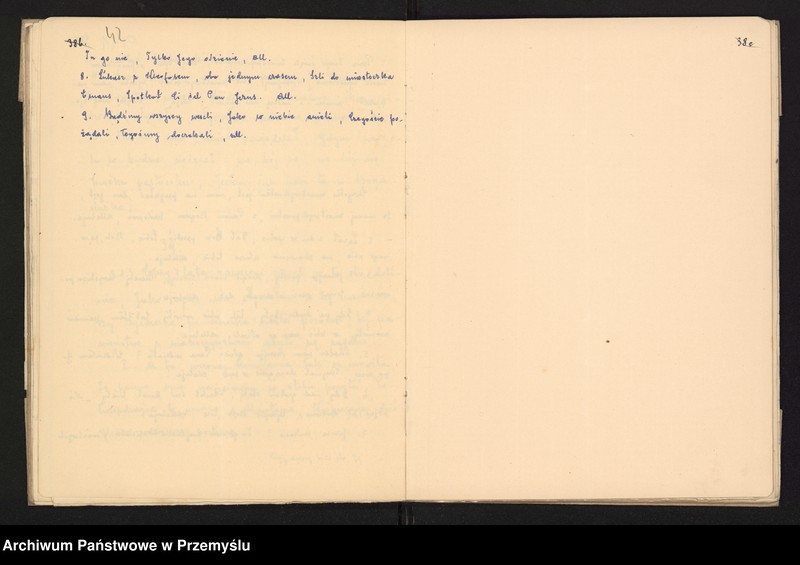 38b.
42
38c
Tu go nie, Tylko Jego odzienie, All.
8. Łukasz z Kleofasem, oba jednym czasem, Szli do miasteczka
Emaus, Spotkał Pan Jezus. All.
9. Bądźmy wszyscy weseli, Jako w niebie anieli, Czegośmy po-
żądali, Tegośmy doczekali, All.
Archiwum Państwowe w Przemyślu